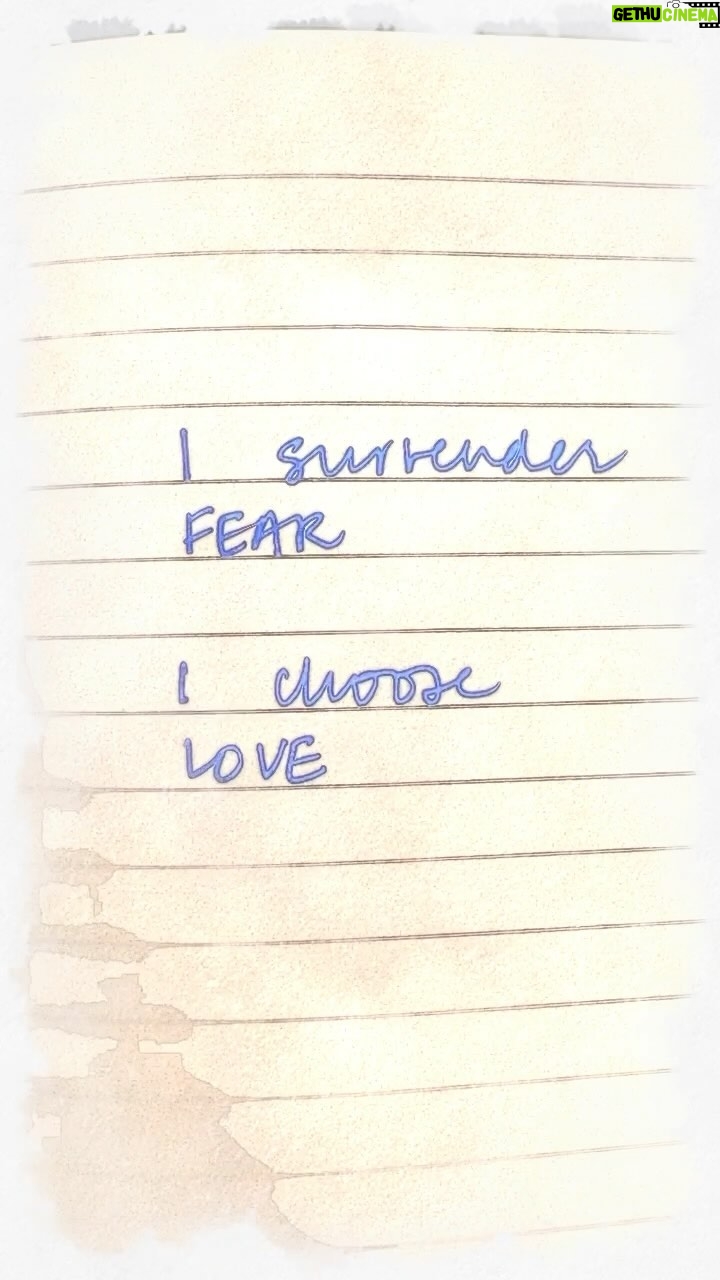 GETHU CINEMA
I surrender
FEAR
I choose
LOVE